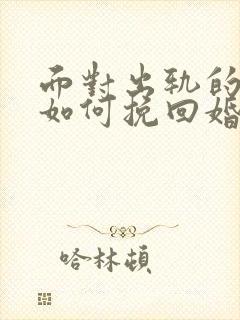 面對出軌的
如何挽回婚
哈林頓